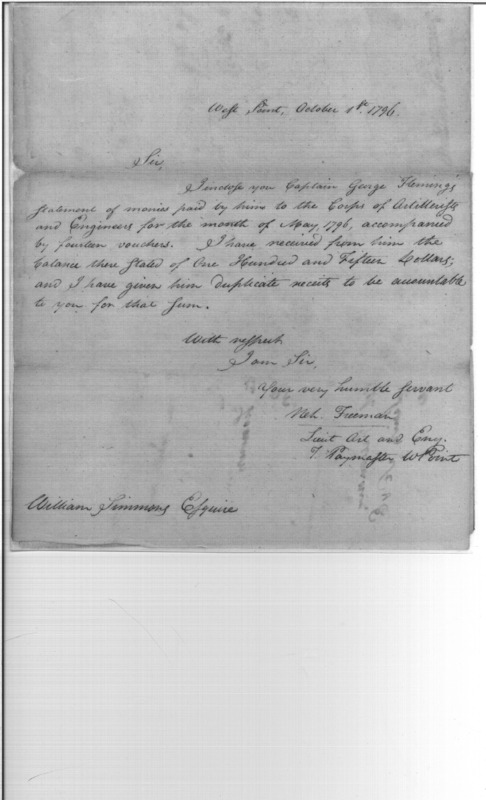 West Point, October 1st. 1796.
Sir,
I inclose you Captain George Fleming's
statement of monies paid by him to the Corps of Artillerists
and Engineers for the month of May, 1796, accompanied
by fourteen vouchers. I have received from him the
balance there stated of One Hundred and Fifteen Dollars;
and I have given him duplicate receits to be accountable
to you for that sum.
With respect
I am Sir,
Your very humble servant
Neh. Freeman
Lieut Art and Eng.
Paymaster W Point
William Simmons Esquire